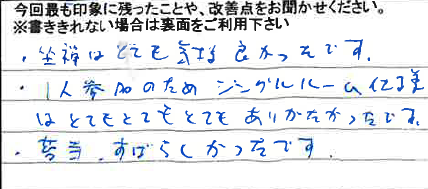 今回最も印象に残ったことや、改善点をお聞かせください。
※書ききれない場合は裏面をご利用下さい
・坐禅はとても気持良かったです。
・1人参加のため シングルルーム仕様
はとてもとてもとてもありがたかったです。
・弁当、すばらしかったです。